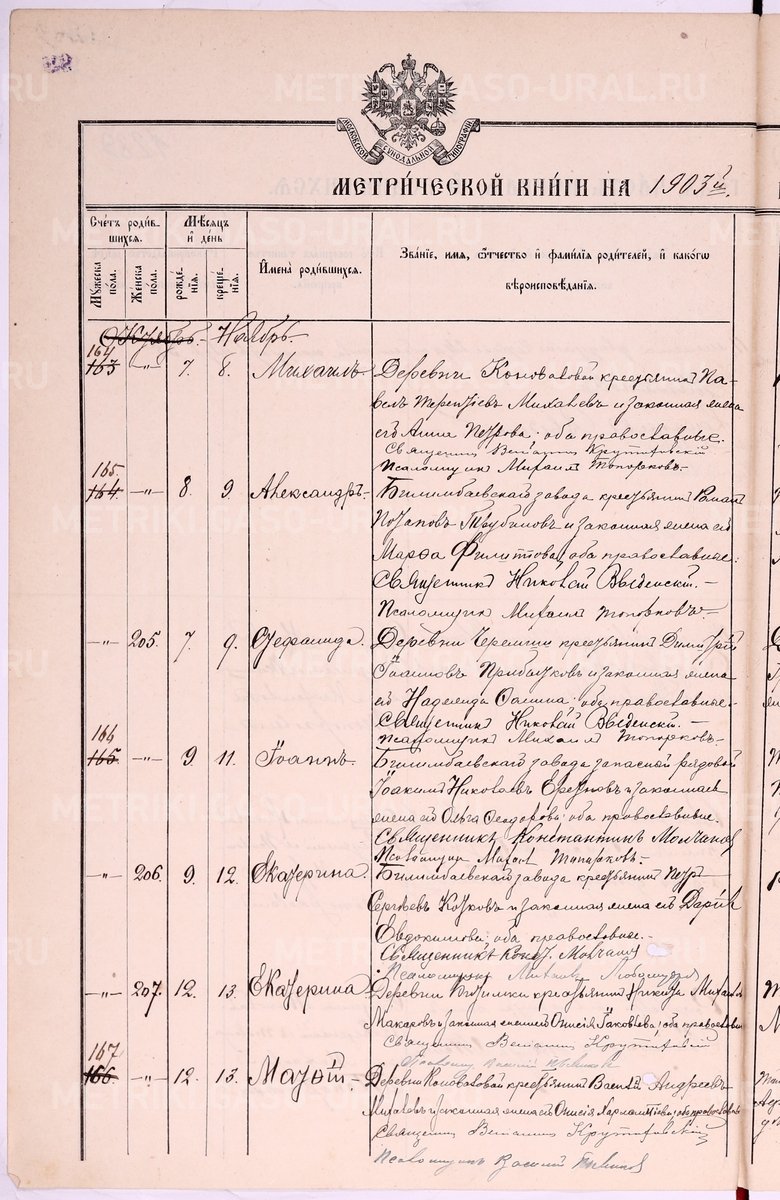 МОСКОВСКОЙ СИНОДАЛЬНОЙ ТИПОГРАФІИ
МЕТРИ́ЧЕСКОЙ КНИ́ГИ НА 1903й.
Счетъ роди́вшихся.
Мѣсяцъ и день
Имена̀ роди́вшихся.
Зва́ніе, имя, ѻтчество и фами́лія роди́телей, и како́гѡ вѣроисповѣ́данія.
Мужеска по́ла.
Женска по́ла.
рожде́нія.
креще́нія.
Октябрь. Ноябрь.
164
163 -"- 7. 8. Михаилъ Деревни Коноваловой крестьянинъ Па-
велъ Терентіевъ Михалевъ и законная жена
его Анна Петрова; оба православные.
Священник Вениамин Крутиковский
Псаломщик Михаил Топорковъ.
165.
164. -"- 8. 9. Александръ. Билимбаевскаго завода крестьянинъ Роман
Потаповъ Трубиновъ и законная жена его
Марѳа Филиппова; оба православные.
Священникъ Николай Введенскій.
Псаломщик Михаил Топорковъ.
-"- 205. 7. 9. Стефанида. Деревни Черемши крестьянинъ Димитрій
Іоанновъ и законная жена
его Надежда; оба православные.
Священникъ Николай Введенскій.
Псаломщик Михаил Топорковъ.
166
165. -"- 9. 11. Іоаннъ. Билимбаевскаго завода запасной рядовой
Іоакимъ Николаевъ и законная
жена его Ольга Ѳеодорова; оба православные.
Священникъ Константинъ Молчанов
Псаломщик Михаил Топорковъ.
-"- 206. 9. 12. Екатерина. Билимбаевскаго завода крестьянинъ Петръ
Сергѣевъ Котковъ и законная жена его Дарія
Евдокимова; оба православные.
Священникъ Конст. Молчанов
Псаломщик
-"- 207. 12. 13. Екатерина Деревни крестьянинъ Никита Михаил
Макаровъ и законная жена его Анисія Іаковлева; оба православные
Священник Вениамин Крутиковский
Псаломщик Василий
167
166. -"- 12. 13. Матѳій. Деревни Коноваловой крестьянинъ Василій Андреевъ
Михалевъ и законная жена его Анисія Харлампіева; оба православные
Священник Вениамин Крутиковский
Псаломщикъ Василий
METRIKI.GASO-URAL.RU